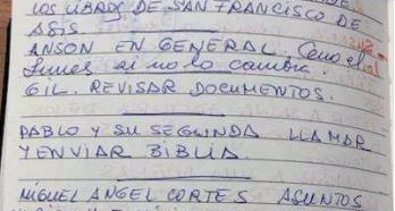 LOS LIBROS DE SAN FRANCISCO DE
ASIS.
ANSON EN GENERAL. Ceno el
Lunes si no lo cambia.
GIL. REVISAR DOCUMENTOS.
PABLO Y SU SEGUNDA LLAMAR
Y ENVIAR BIBLIA
MIGUEL ANGEL CORTES ASUNTOS